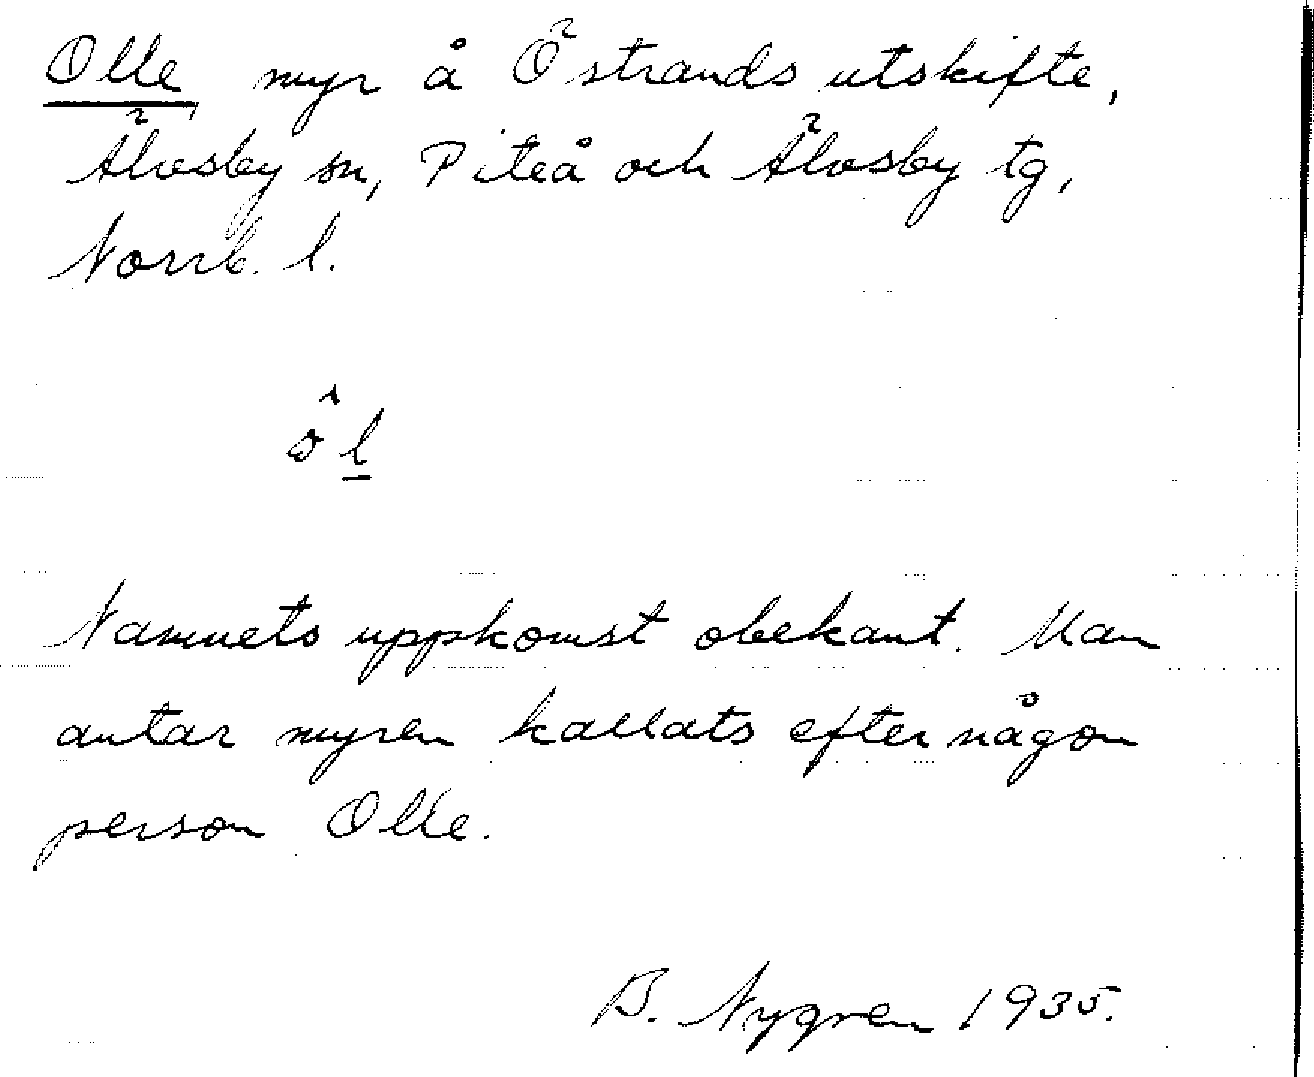 Olle, myr å Östrands utskifte,
Älvsby sn, Piteå och Älvsby tg,
Norrb. l.
Namnets uppkomst obekant. Man
antar myren kallats efter någon
person Olle.
B. Nygren 1935.